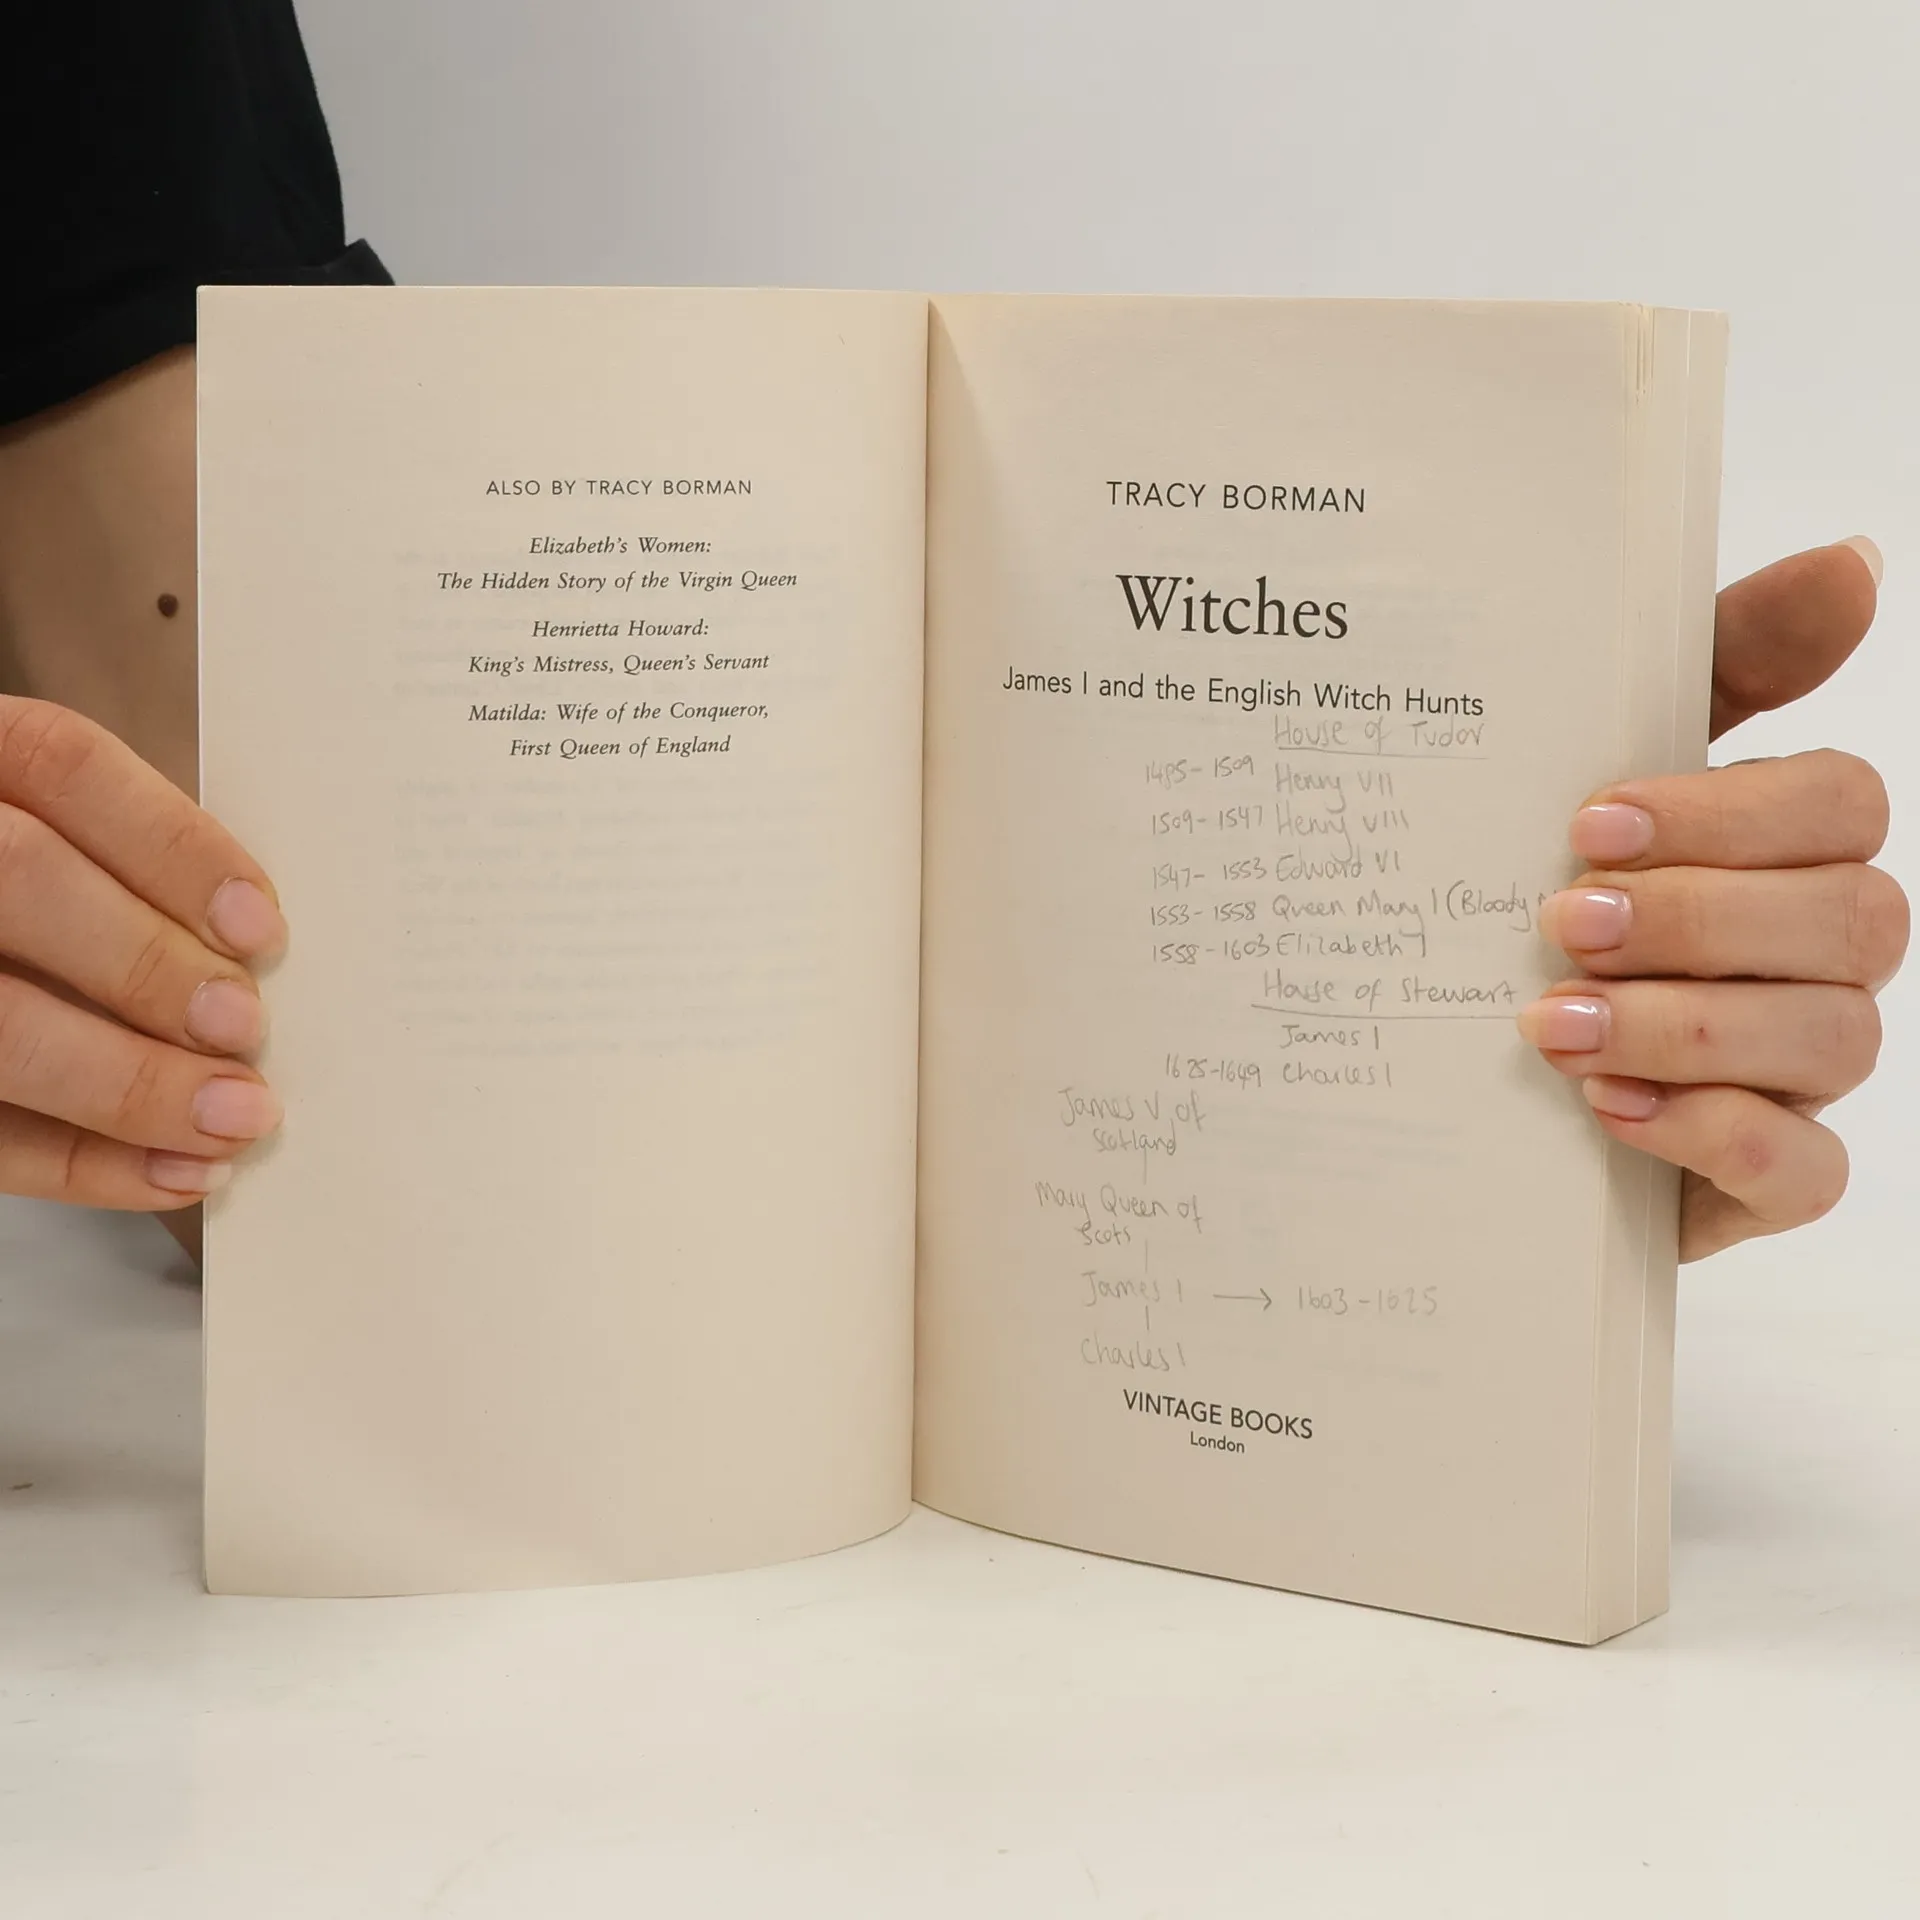 ALSO BY TRACY BORMAN
Elizabeth's Women:
The Hidden Story of the Virgin Queen
Henrietta Howard:
King's Mistress, Queen's Servant
Matilda: Wife of the Conqueror,
First Queen of England
TRACY BORMAN
Witches
James I and the English Witch Hunts
House of Tudor
1485-1509 Henry VII
1509-1547 Henry VIII
1547-1553 Edward VI
1553-1558 Queen Mary I (Bloody
1558-1603 Elizabeth I
House of Stewart
James I
1625-1649 Charles I
James V of
Scotland
Mary Queen of
Scots
James I → 1603-1625
Charles I
VINTAGE BOOKS
London